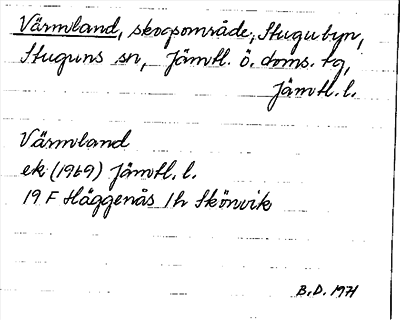 Värmland, skogsområde, Stugubyn,
Stuguns sn, Jämtl. ö. doms. tg,
Jämtl. l.
Värmland
ek (1969) Jämtl. l.
19 F Häggenås 1h Skönvik
B.D. 1971